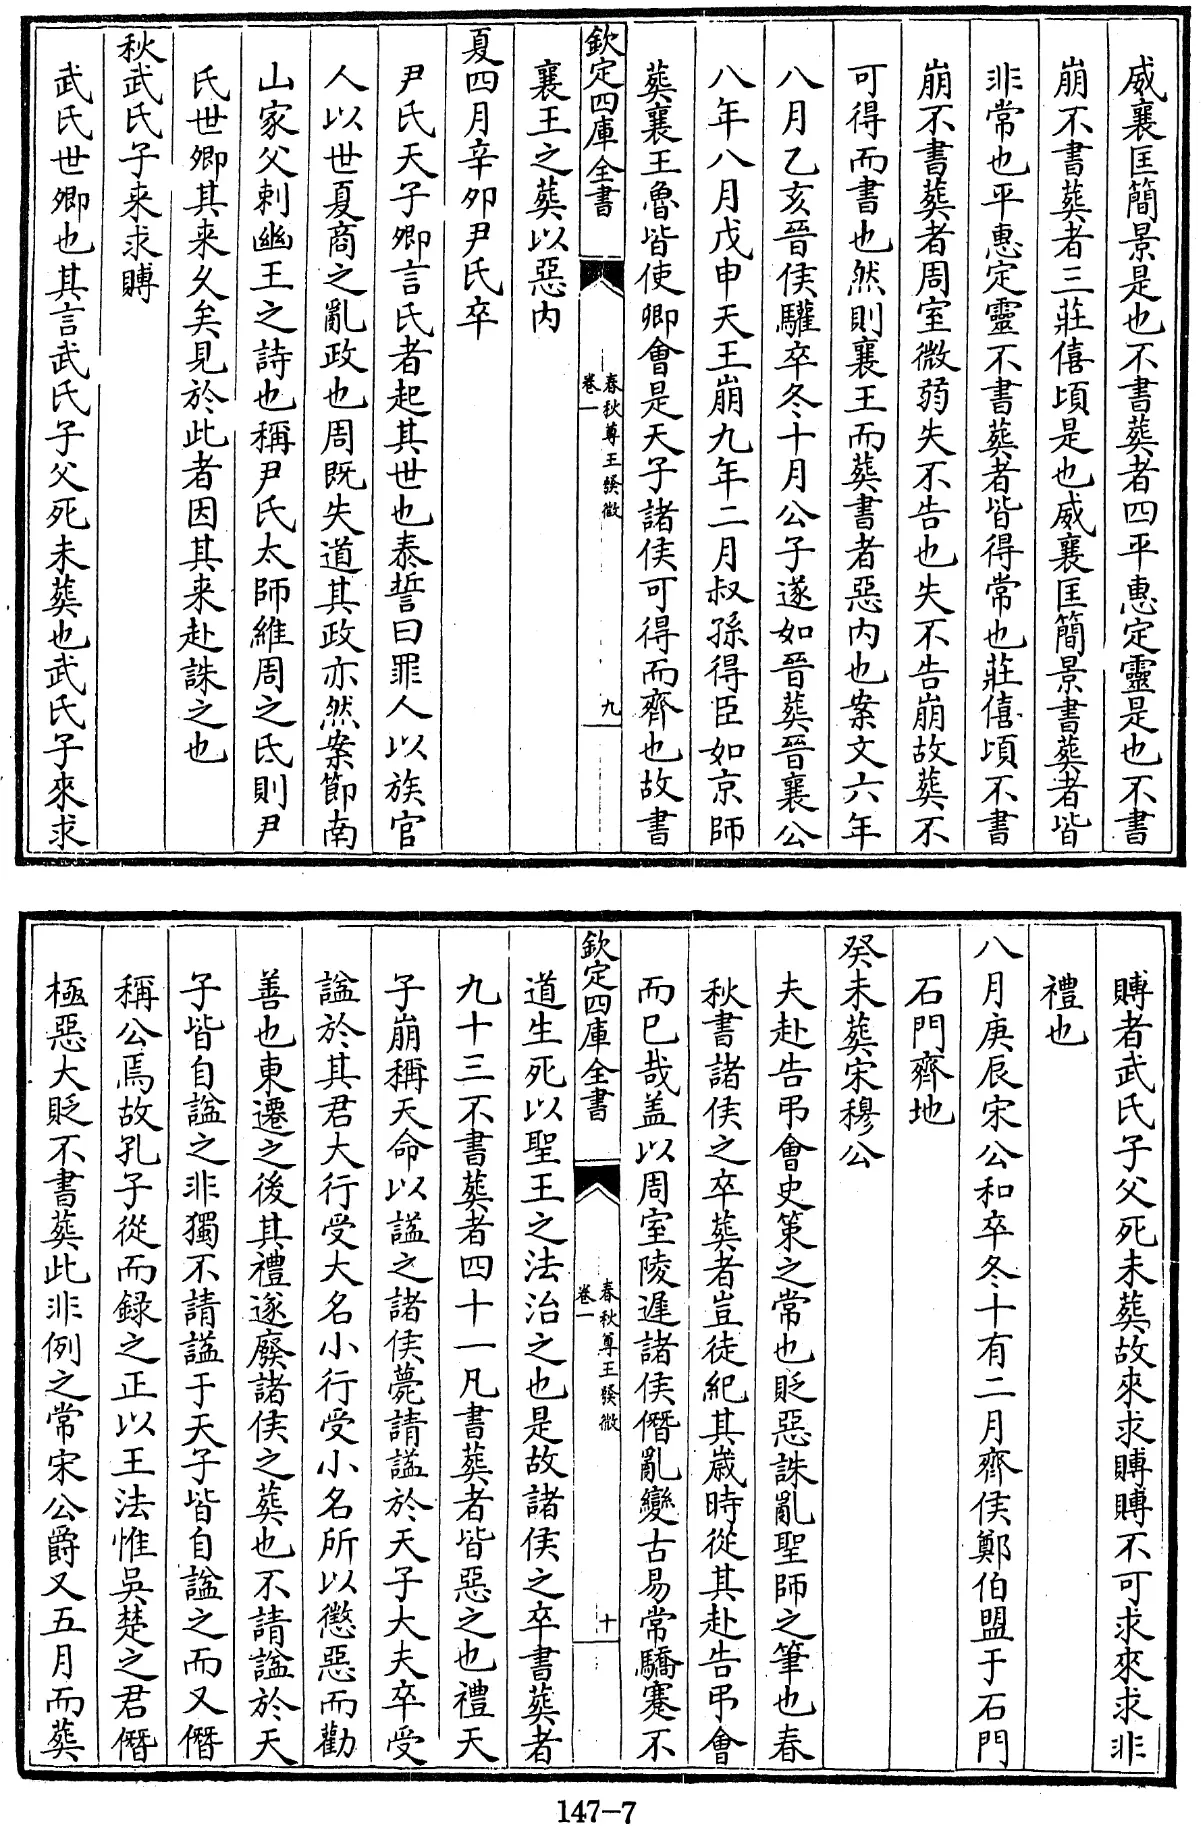 威襄匡簡景是也不書葬者四平惠定靈是也不書
崩不書葬者三莊僖頃是也威襄匡簡景書葬者皆
非常也平惠定靈不書葬者皆得常也莊僖頃不書
崩不書葬者周室微弱失不告也失不告崩故葬不
可得而書也然則襄王而葬書者惡内也案文六年
八月乙亥晉侯驩卒冬十月公子遂如晉葬晉襄公
八年八月戊申天王崩九年二月叔孫得臣如京師
葬襄王魯皆使卿會是天子諸侯可得而齊也故書
欽定四庫全書
春秋尊王發微
卷一
九
襄王之葬以惡内
夏四月辛卯尹氏卒
尹氏天子卿言氏者起其世也泰誓曰罪人以族官
人以世夏商之亂政也周既失道其政亦然案節南
山家父刺幽王之詩也稱尹氏太師維周之氐則尹
氏世卿其来乆矣見於此者因其来赴誅之也
秋武氏子来求賻
武氏世卿也其言武氏子父死未葬也武氏子來求
賻者武氏子父死未葬故來求賻賻不可求來求非
禮也
八月庚辰宋公和卒冬十有二月齊侯鄭伯盟于石門
石門齊地
癸未葬宋穆公
夫赴告弔會史策之常也貶惡誅亂聖師之筆也春
秋書諸侯之卒葬者豈徒紀其嵗時從其赴告弔會
而已哉盖以周室陵遲諸侯僭亂變古易常驕蹇不
欽定四庫全書
春秋尊王發微
卷一
十
道生死以聖王之法治之也是故諸侯之卒書葬者
九十三不書葬者四十一凡書葬者皆惡之也禮天
子崩稱天命以謚之諸侯薨請謚於天子大夫卒受
謚於其君大行受大名小行受小名所以懲惡而勸
善也東遷之後其禮遂廢諸侯之葬也不請謚於天
子皆自謚之非獨不請謚于天子皆自謚之而又僭
稱公焉故孔子從而録之正以王法惟吳楚之君僭
極惡大貶不書葬此非例之常宋公爵又五月而葬
147-7